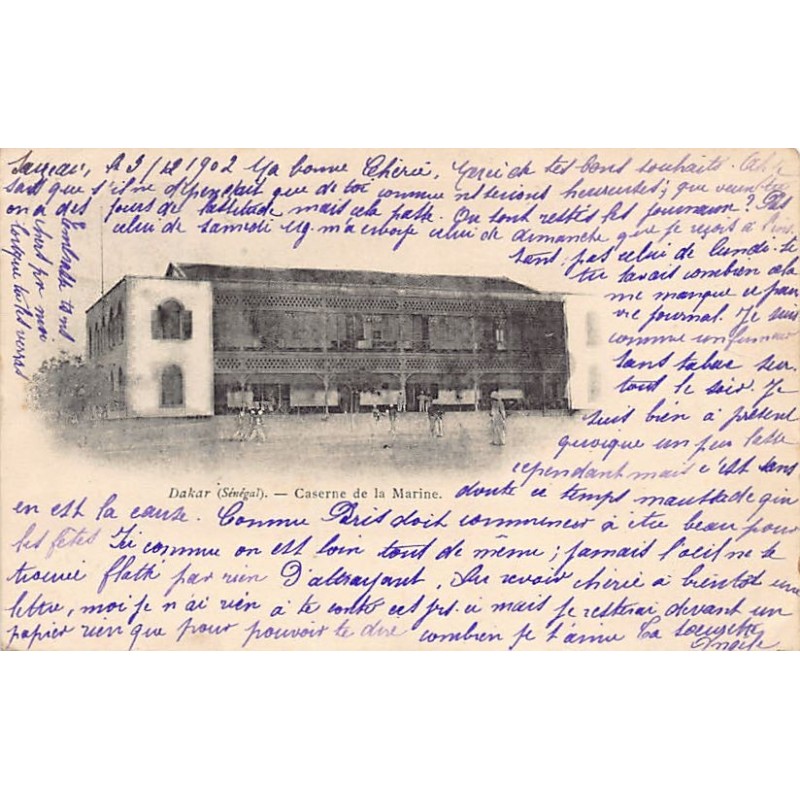 A 3/12 1902 Ma bonne Chérie, Merci de tes bons souhaits.
sait que s'il ne dépendait que de toi comme nt serions heureuses; que veux-tu
on a des jours de lassitude mais cela passe. Ou sont restés les journaux? Pas
celui de samedi ug. m'a envoyé celui de dimanche que je reçois à l'ins.
tant, pas celui de lundi. Si
tu savais combien cela
me manque ce pau
vre journal. Je suis
comme un fumeur
sans tabac sur.
tout le soir. Je
suis bien à présent
quoique un peu lasse
cependant mais c'est sans
doute ce temps maussade qui
Dakar (Sénégal). — Caserne de la Marine.
en est la cause. Comme Paris doit commencer à être beau pour
les fêtes Ici comme on est loin tout de même; jamais l'oeil ne se
trouve flatté par rien D'attrayant. Au revoir chérie à bientôt une
lettre, moi je n'ai rien à te conter cet jrs. ci mais je resterai devant un
papier rien que pour pouvoir te dire combien je t'aime Ta soeurette
Angèle
Embrasse tons
pour moi
lorsque tu les verras